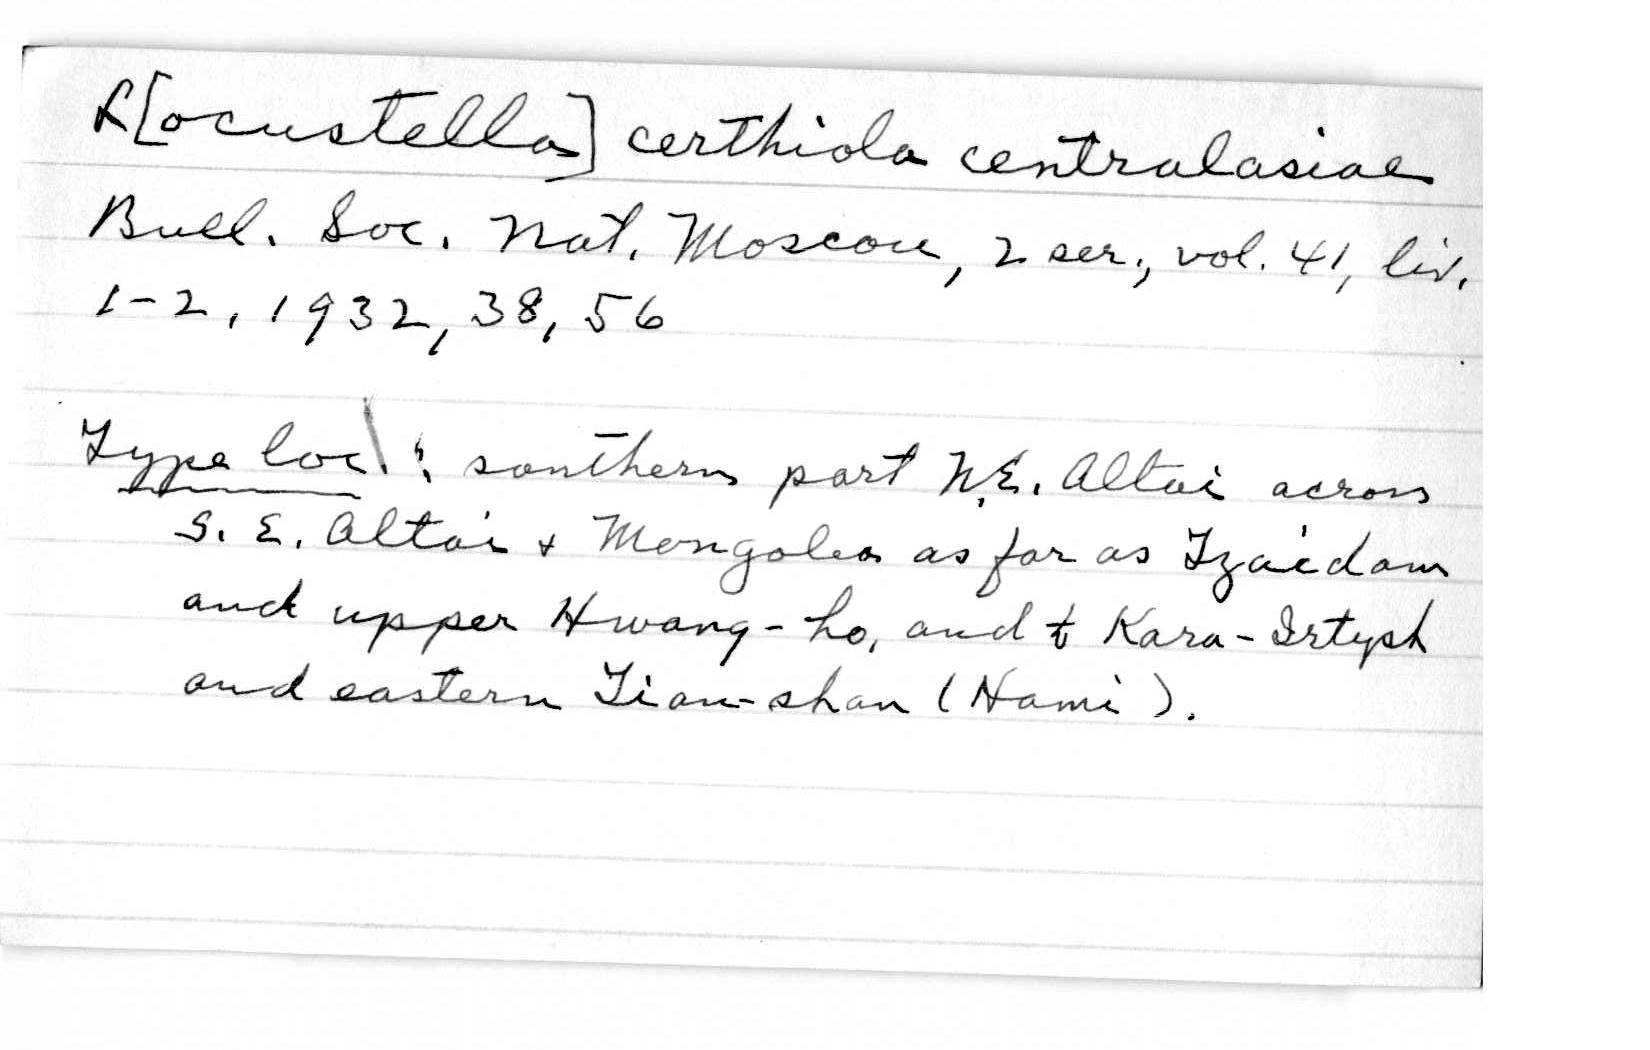 L[ocustella] certhiola centralasiae
Bull. Soc. Nat. Moscou, 2 ser., vol. 41, liv.
1-2, 1932, 38, 56
Type loc.: southern part N.E. Altai across
S. E. Altai + Mongolia as far as Tzaidam
and upper Hwang-ho, and t Kara-Irtysh
and eastern Tian-shan (Hami).